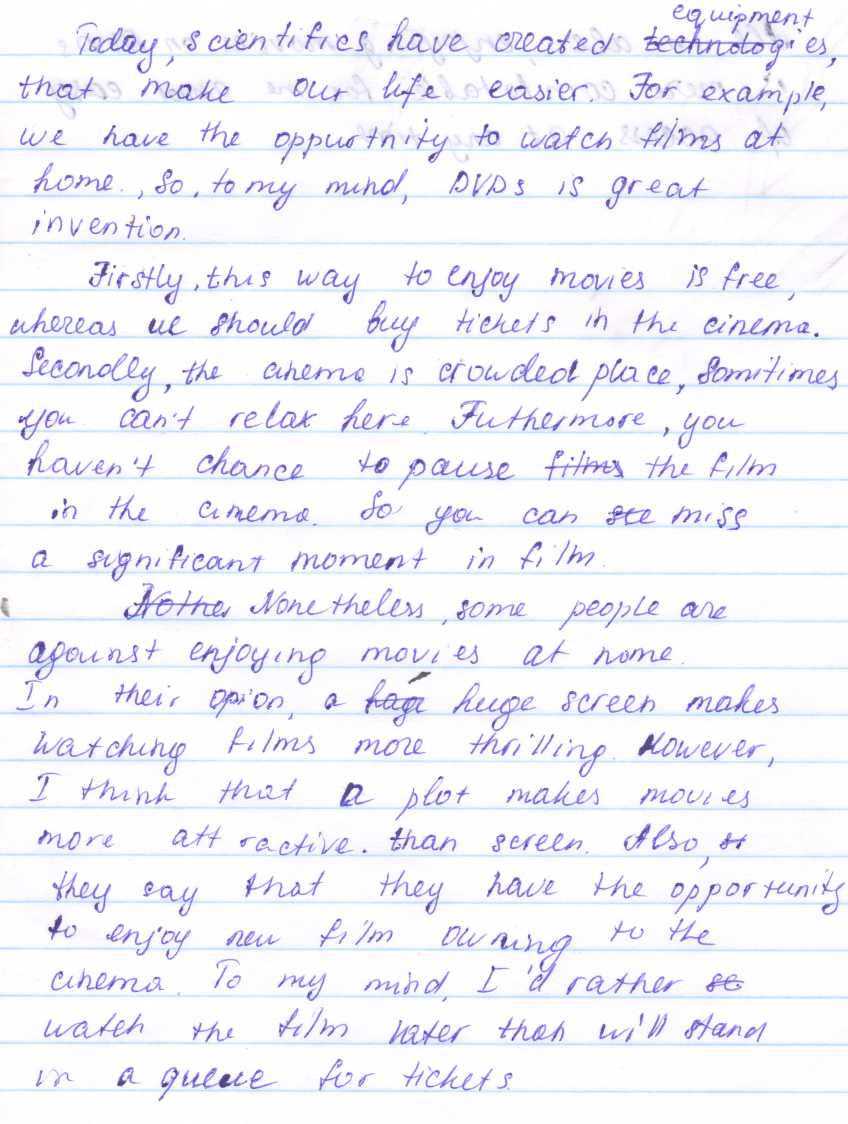 equipment
Today, scientifics have created technologies,
that make our life easier. For example,
we have the oppurtnity to watch films at
home., So, to my mind, DVDs is great
invention.
Firstly, this way to enjoy movies is free,
whereas we should buy tickets in the cinema.
Secondly, the cinema is crowded place, Somitimes
you can't relax here. Futhermore, you
haven't chance to pause films the film
in the cinema. So you can see miss
a significant moment in film.
Nothe Nonetheless, some people are
against enjoying movies at home.
In their opion, a huge screen makes
watching films more thrilling. However,
I think that a plot makes movies
more attractive. than screen. Also, st
they say that they have the opportunity
to enjoy new film owning to the
cinema. To my mind, I'd rather st
watch the film later than will stand
in a queue for tickets